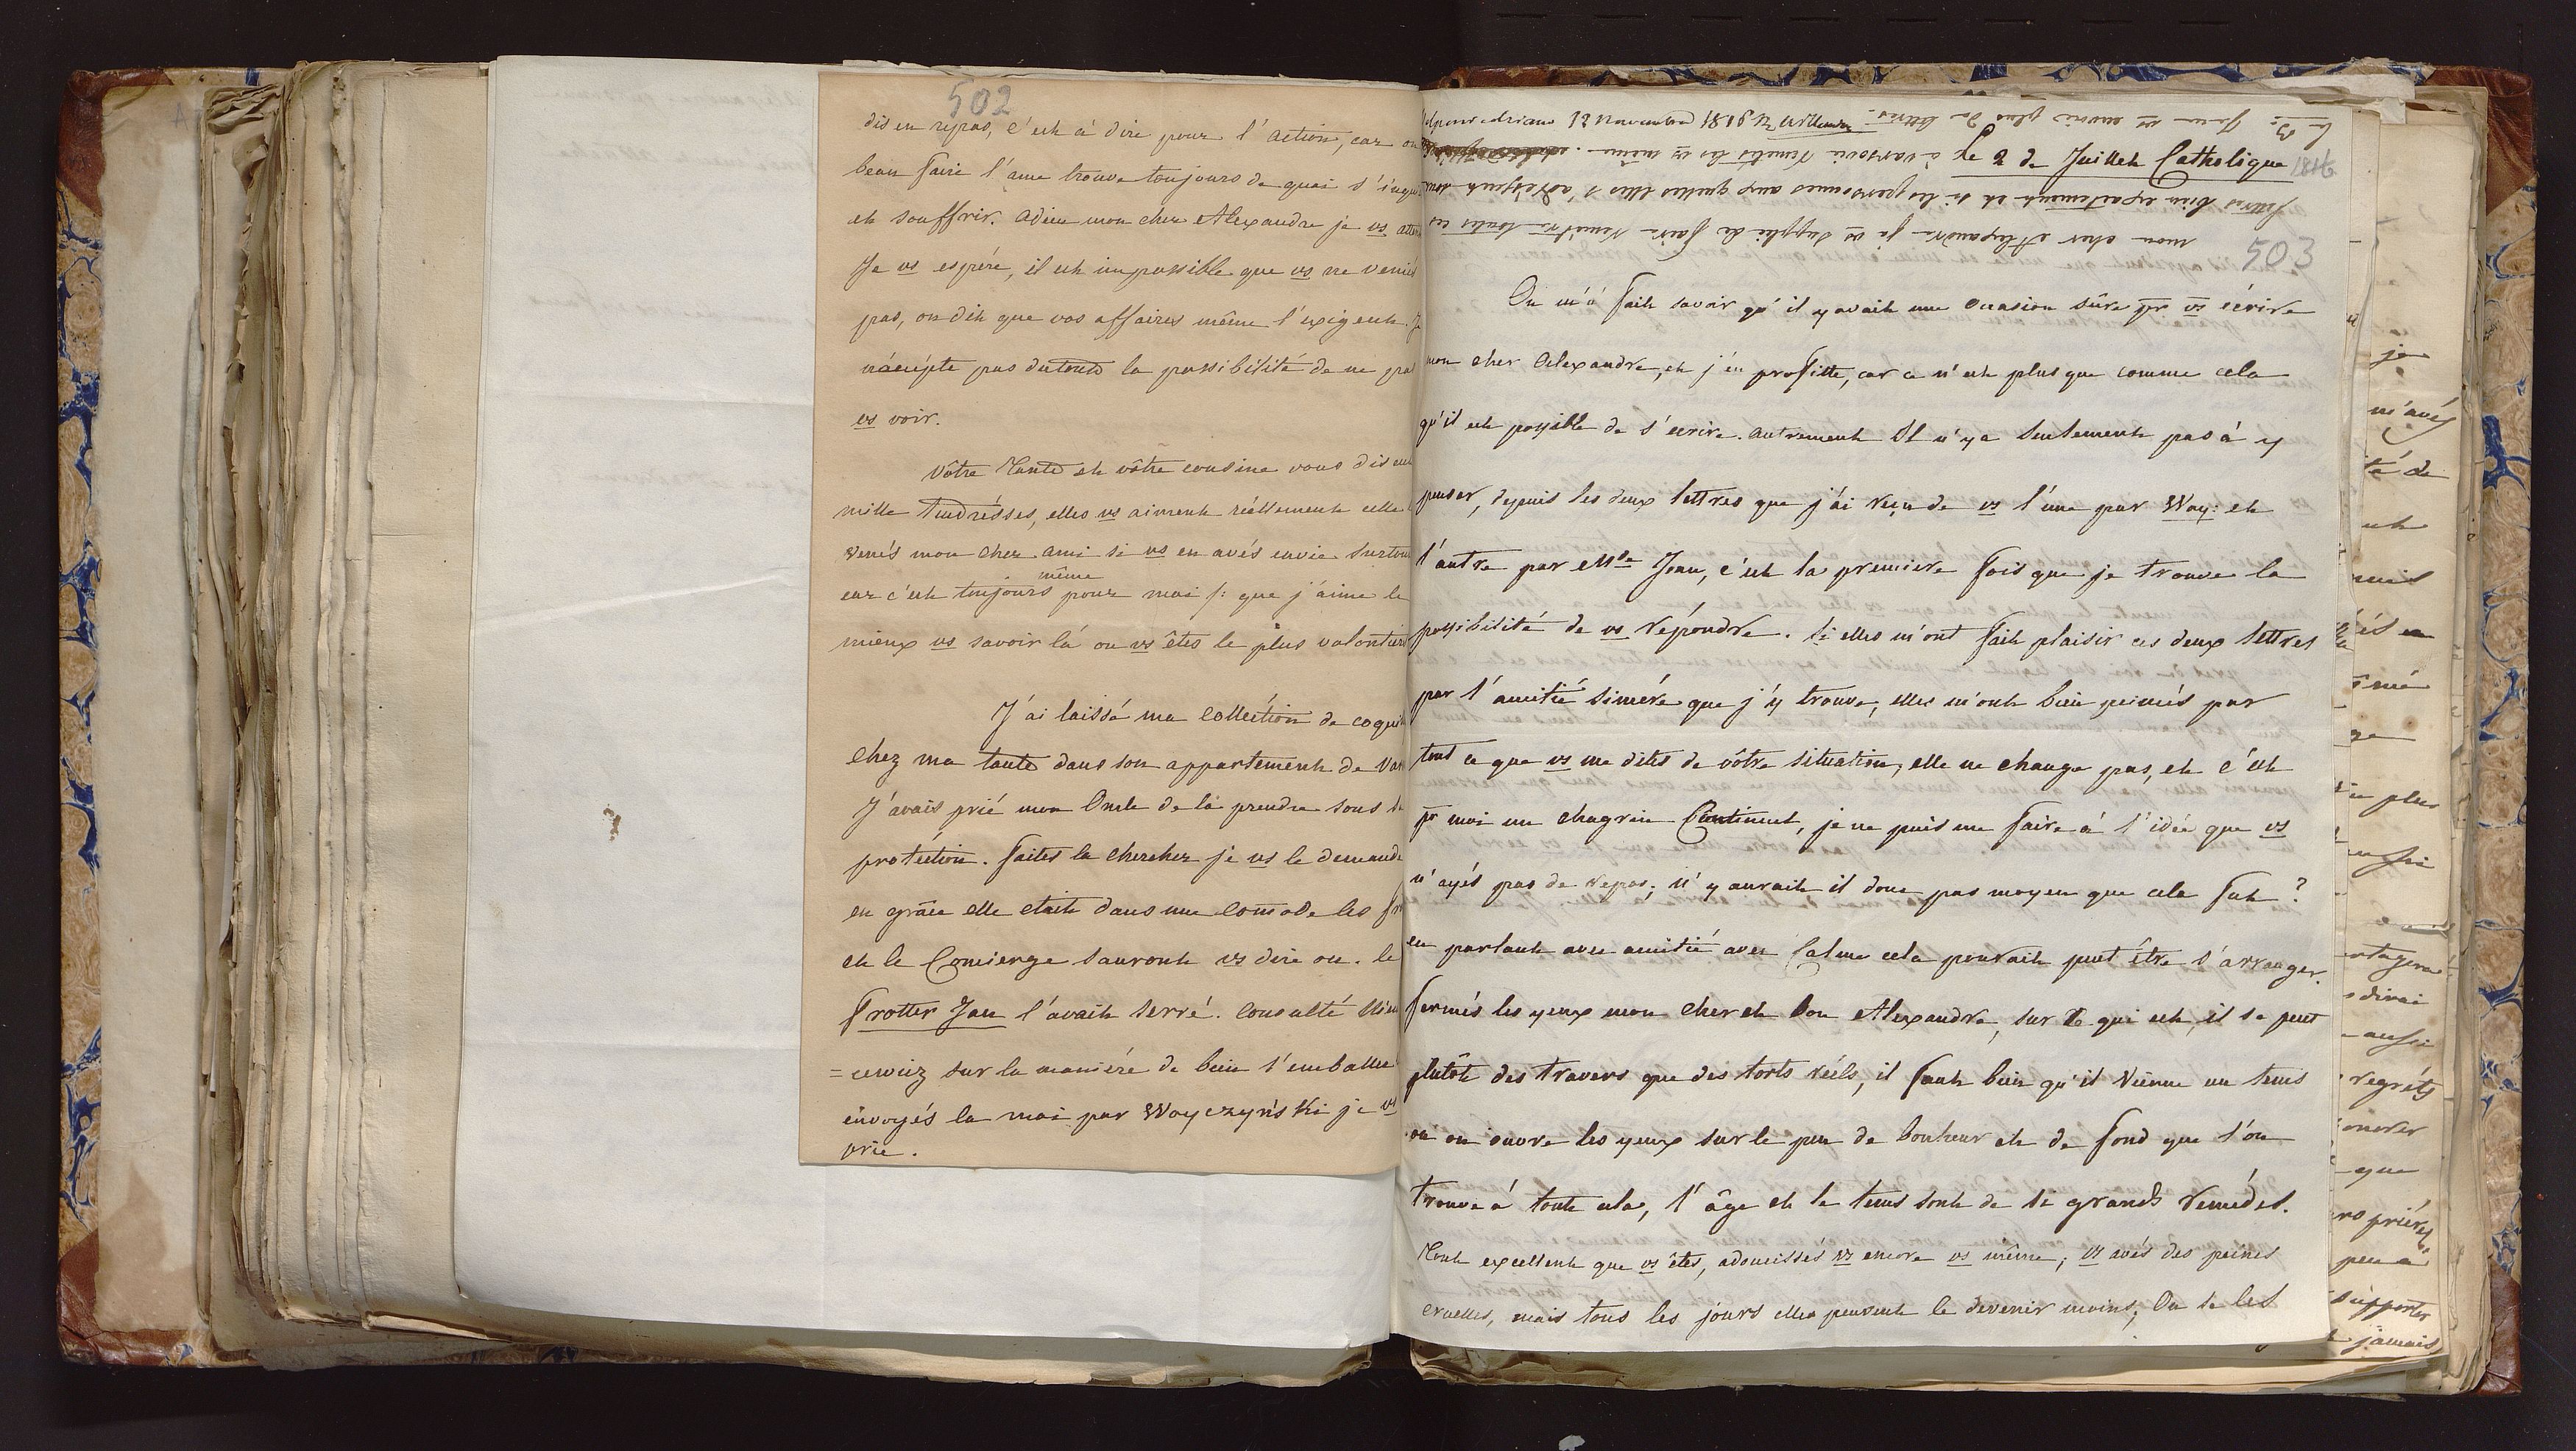 502
dis en repos, c'est à dire pour l'action, car on
beau faire l'ame trouve toujours de quoi s'inqui
et souffrir. adieu mon cher Alexandre je vs atten
Je vs espére, il est impossible que vs ne veniés
pas, on dit que vos affaires même l'exigent. J
n'accépte pas dutout la possibilité de ne pas
vs voir.
vôtre Tante et vôtre cousine vous disent
mille tendrésses, elles vs aiment réellement celle
venés mon cher ami si vs en avés envie surtout
même
car c'est toujours pour moi /: que j'aime le
mieux vs savoir là ou vs êtes le plus volontiers
J'ai laissé ma colléction de coquil
chez ma tante dans son appartement de Var
J'avais prié mon Oncle de la prendre sous sa
protéction. faites la chercher je vs le demande
en grâce elle etait dans une comode les fr
et le Concierge sauront vs dire ou. le
frotter Jan l'avait serré. consulté Niem
=cewicz sur la maniére de bien l'emballer
envoyés la moi par Woyczyński je vs
prie.
12 novembre 1818
Le 2 de Juillet Catholique 1816
La Bs Jean vs envoie plus de lettres
à varsovie remetés les vs même.
lettres bien exactement et si les personnes aux quelles elles s'adressent sont
mon cher Alexandre je vs supplie de faire remettre toutes ces
503
On m'a fait savoir qu'il y avait une occasion sûre pr vs écrire
mon cher Alexandre, et j'en profitte, car ce n'est plus que comme cela
qu'il est possible de s'ecrire. autrement Il n'y a seulement pas à y
penser, depuis les deux lettres que j'ai reçu de vs l'une par Woy: et
l'autre par Mde Jean, c'est la premiere fois que je trouve la
possibilité de vs répondre. Si elles m'ont fait plaisir ces deux lettres
par l'amitié sincére que j'y trouve, elles m'ont bien peinés par
tout ce que vs me dites de vôtre situation, elle ne change pas, et c'est
pr moi un chagrin Continuel, je ne puis me faire à l'idée que vs
n'ayés pas de repos; n'y aurait il donc pas moyen que cela fut ?
en parlant avec amitié avec calme cela pourrait peut être s'arranger.
fermés les yeux mon cher et bon Alexandre, sur ce qui est, il se peut
plutôt des travers que des torts réels, il faut bien qu'il vienne un tems
où on ouvre les yeux sur le peu de bonheur et de fond que l'on
trouve à tout cela, l'âge et le tems sont de si grands remédes.
Tout excellent que vs êtes, adoucissés vs encore vs même; vs avés des peines
cruelles, mais tous les jours elles peuvent le devenir moins; On se les
je
m'avés
té de
plus
regréts
que
priéres
peu à
supporter
jamais